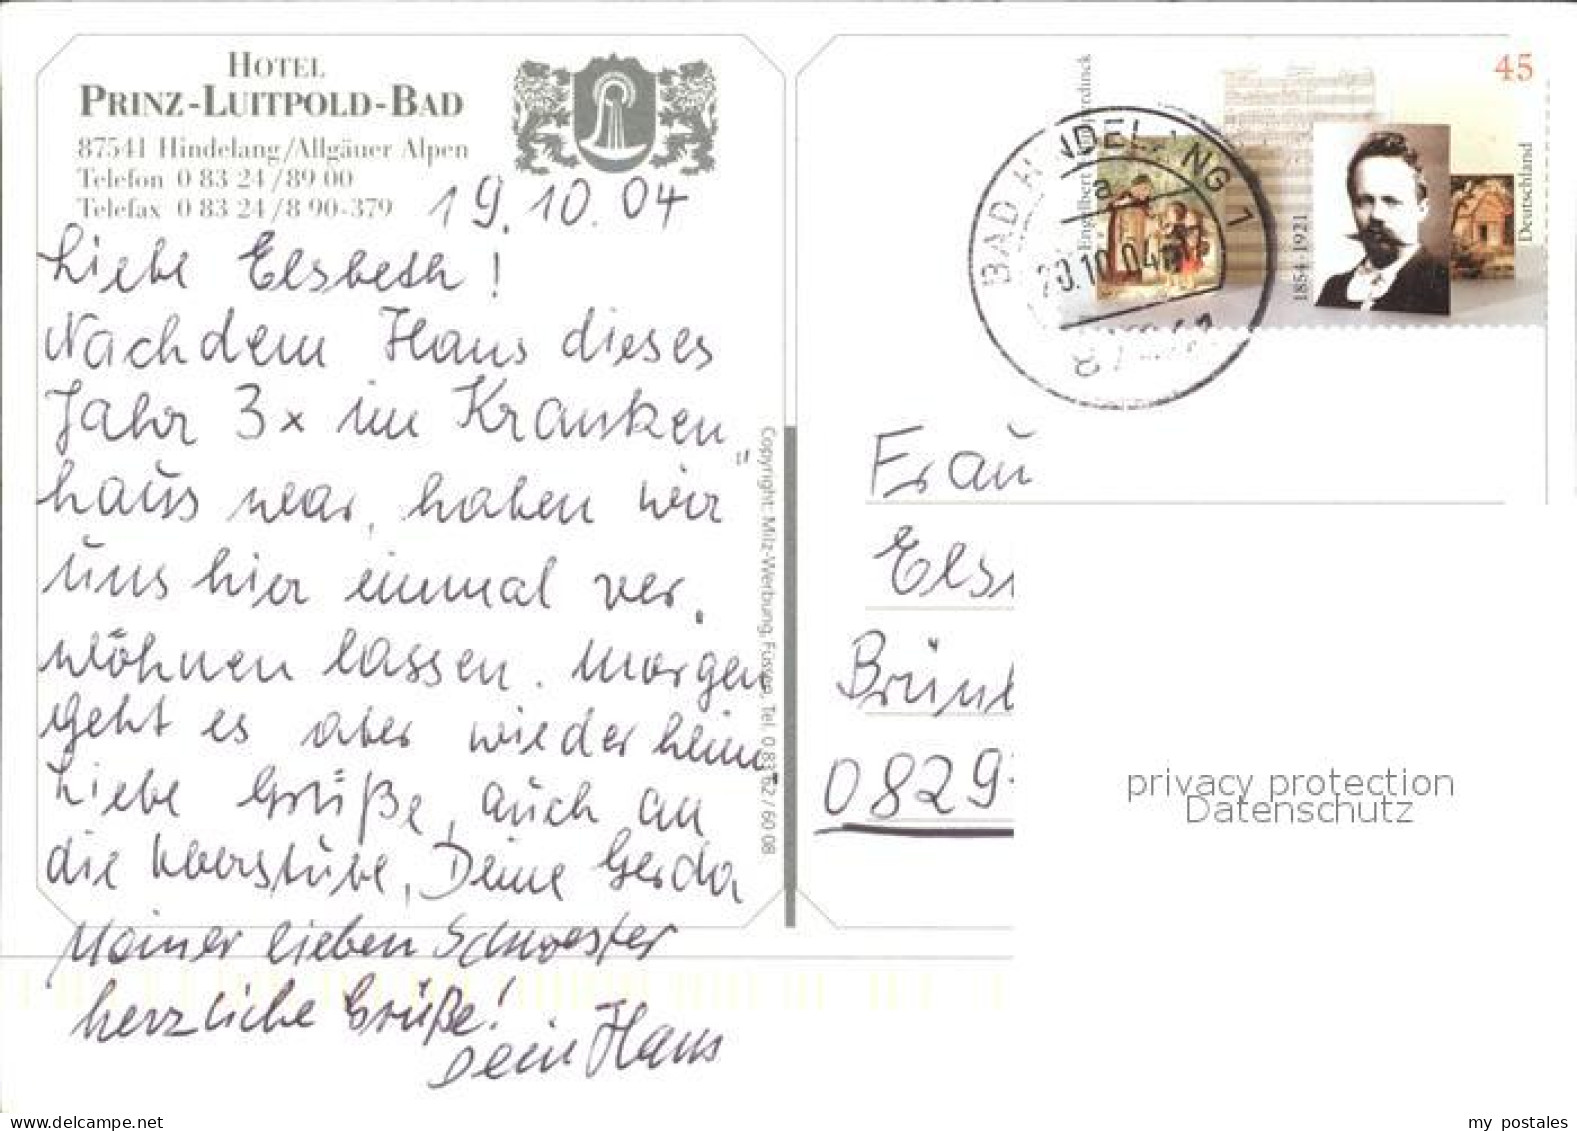 HOTEL
PRINZ-LUITPOLD-BAD
87541 Hindelang/Allgäuer Alpen
Telefon 0 83 24/89 00
Telefax 0 83 24/8 90-379
19.10.04
Liebe Elsbeth!
Nachdem Hans dieses
Jahr 3x im Kranken"
haus war, haben wir
uns hier einmal ver.
wöhnen lassen. Morgen
geht es aber wieder heim.
Liebe Grüße, auch an
die Deine Gerda
Meiner lieben Schwester
herzliche Grüße!
Dein Hans
Copyright: Milz-Werbung, Füssen, Tel. 0 83 62 / 60 08
45
Deutschland
1854-1921
Engelbert
BAD HINDELANG 1
a
20.10.04
Frau
Els
Brünl
0829
privacy protection
Datenschutz
my postales